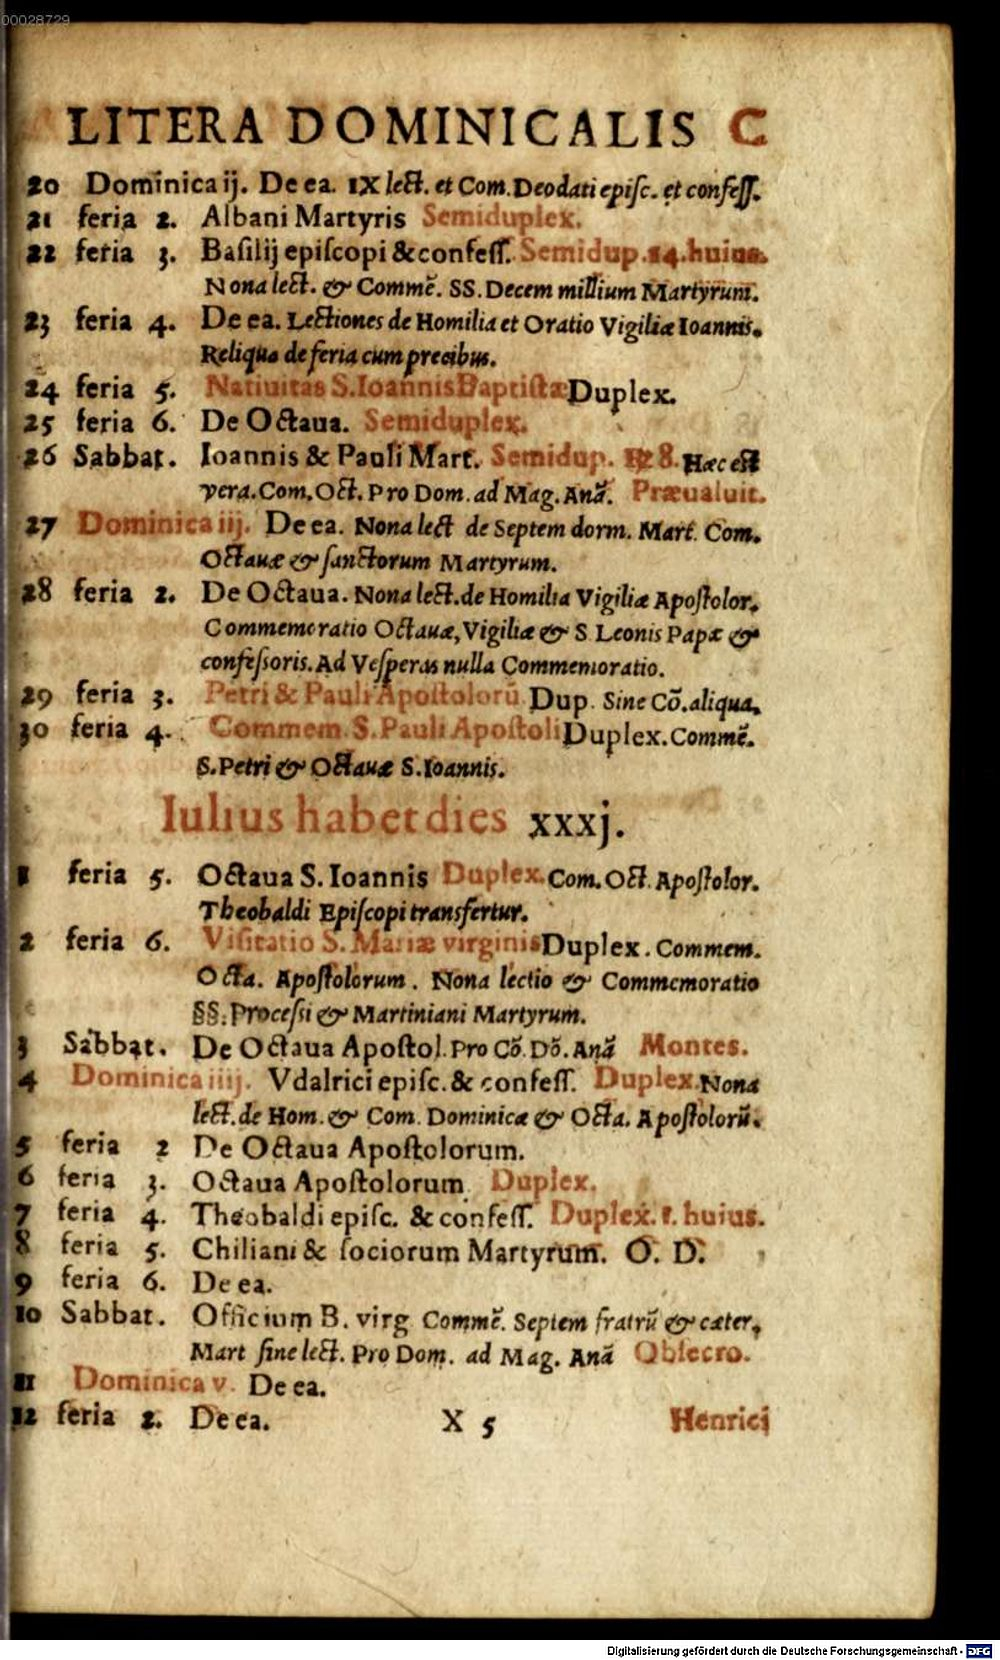 00028729
LITERA DOMINICALIS C
20 Dominica ij. De ea. IX lect. et Com. Deodati episc. et confess.
21 feria 2. Albani Martyris Semiduplex.
22 feria 3. Basilij episcopi & confess. Semidup. 14. huius.
Nona lect. & Commē. SS. Decem millium Martyrum.
23 feria 4. De ea. Lectiones de Homilia et Oratio Vigiliæ Ioannis.
Reliqua de feria cum precibus.
24 feria 5. Natiuitas S. Ioannis Baptistæ Duplex.
25 feria 6. De Octaua. Semiduplex.
26 Sabbat. Ioannis & Pauli Mart. Semidup. 8. Hæc est
vera. Com. Oct. Pro Dom. ad Mag. Anã. Præualuit.
27 Dominica iij. De ea. Nona lect de Septem dorm. Mart. Com.
Octauæ & sanctorum Martyrum.
28 feria 2. De Octaua. Nona lect. de Homilia Vigiliæ Apostolor.
Commemoratio Octauæ, Vigiliæ & S Leonis Papæ &
confessoris. Ad Vesperas nulla Commemoratio.
29 feria 3. Petri & Pauli Apostolorū Dup. Sine Cõ. aliqua.
30 feria 4. Commem. S. Pauli Apostoli Duplex. Commē.
S. Petri & Octauæ S. Ioannis.
Iulius habet dies xxxj.
1 feria 5. Octaua S. Ioannis Duplex. Com. Oct. Apostolor.
Theobaldi Episcopi transfertur.
2 feria 6. Visitatio S. Mariæ virginis Duplex. Commem.
Octa. Apostolorum. Nona lectio & Commemoratio
SS. Processi & Martiniani Martyrum.
3 Sabbat. De Octaua Apostol. Pro Cõ. Dõ. Anã Montes.
4 Dominica iiij. Vdalrici episc. & confess. Duplex. Nona
lect. de Hom. & Com. Dominicæ & Octa. Apostolorū.
5 feria 2 De Octaua Apostolorum.
6 feria 3. Octaua Apostolorum. Duplex.
7 feria 4. Theobaldi episc. & confess. Duplex. 1. huius.
8 feria 5. Chiliani & sociorum Martyrum. O. D.
9 feria 6. De ea.
10 Sabbat. Officium B. virg Commē. Septem fratrū & cæter.
Mart sine lect. Pro Dom. ad Mag. Anã Obsecro.
11 Dominica v. De ea.
12 feria 2. De ea. X 5 Henrici
Digitalisierung gefördert durch die Deutsche Forschungsgemeinschaft - DFG